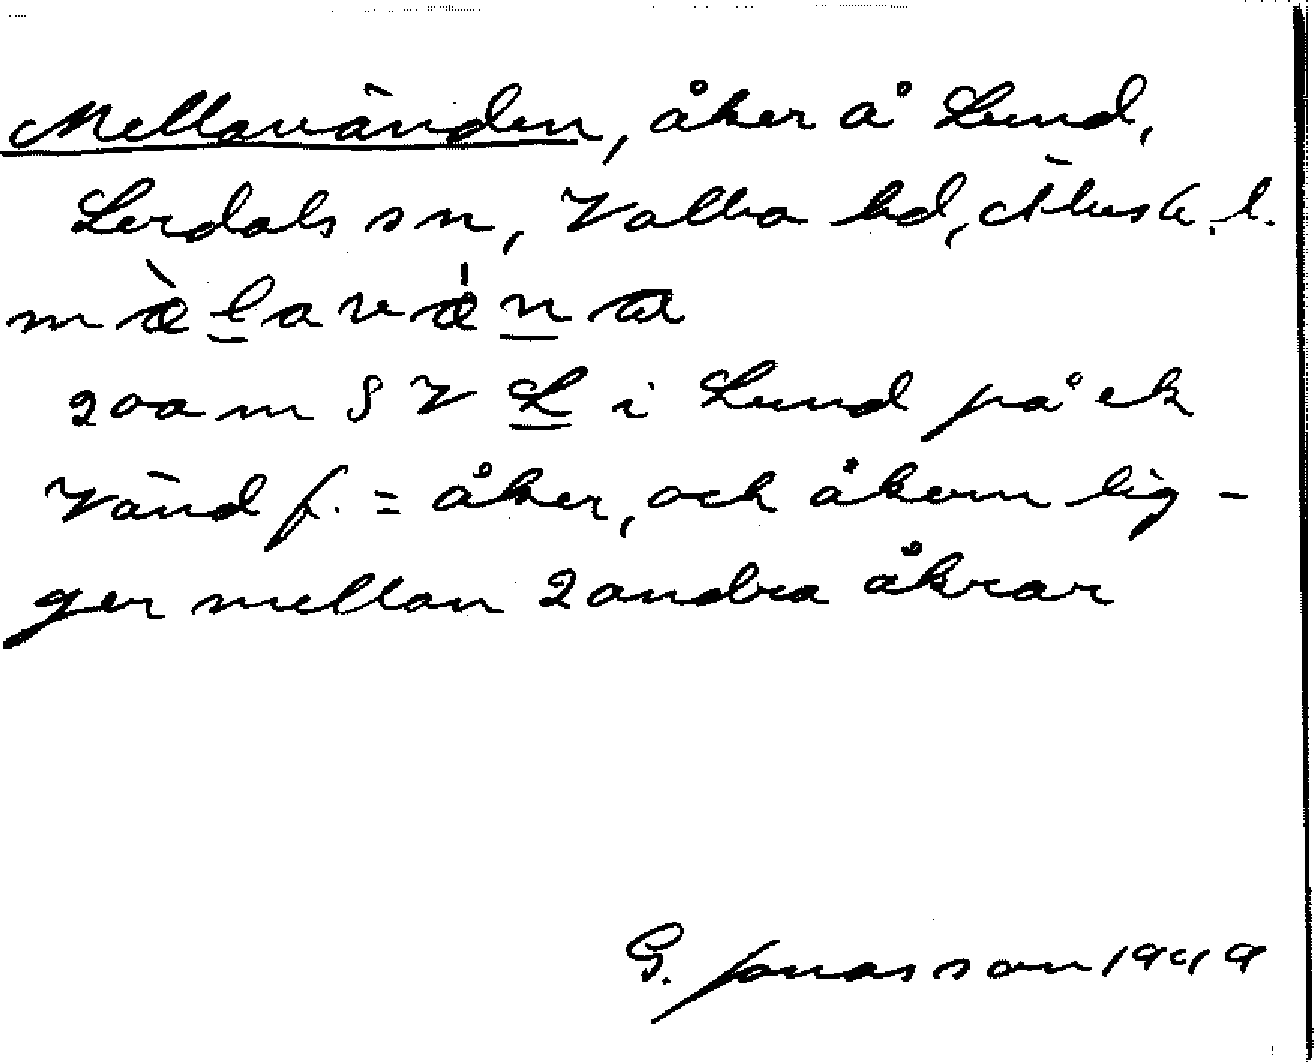 Mellavänden, åker å Lund,
Lerdals sn, Valbo hd, Älvsb. l.
mæ̀l̲avæ̍n̲a
200 m SV L̲ i Lund på ek
Vänd f. = åker, och åkern lig-
ger mellan 2 andra åkrar
G. Jonasson 1949